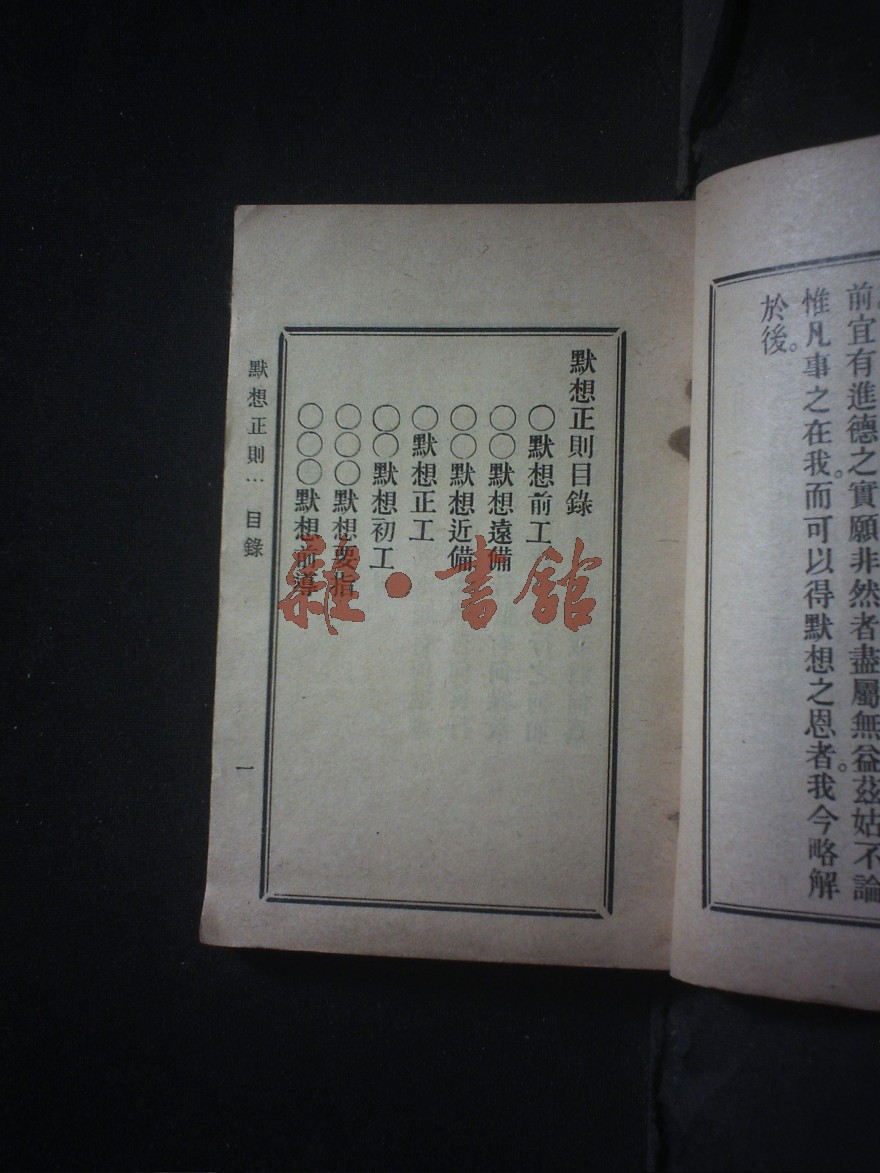 前宜有進德之實願非然者盡屬無益茲姑不論
惟凡事之在我。而可以得默想之恩者。我今略解
於後。
默想正則目錄
〇默想前工
〇〇默想遠備
〇〇默想近備
〇默想正工
〇〇默想初工
〇〇〇默想要指
〇〇〇默想前導
默想正則⋯目錄
一
雜·書館